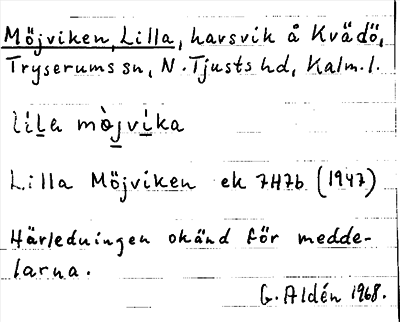 Möjviken, Lilla, havsvik å Kvädö,
Tryserums sn, N. Tjusts hd, Kalm. l.
líla mòjvíka
Lilla Möjviken ek 7H7b (1947)
Härledningen okänd för medde-
larna.
G. Aldén 1968.